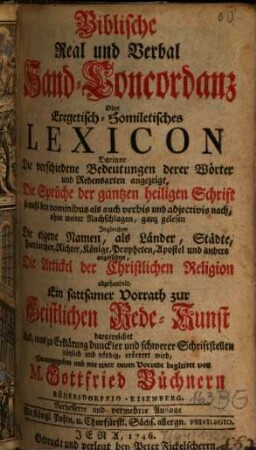 Biblische
Real und Verbal
Hand-Concordanz
Oder
Exegetisch-Homiletisches
LEXICON
Darinne
Die verschiedene Bedeutungen derer Wörter
und Redensarten angezeigt,
Die Sprüche der gantzen heiligen Schrift
so wohl den nominibus als auch verbis und adjectivis nach,
ohne weiter Nachschlagen, gantz gelesen
Ingleichen
Die eigene Namen, als Länder, Städte,
Patriarchen, Richter, Könige, Propheten, Apostel und andere
angeführet,
Die Artickel der Christlichen Religion
abgehandelt,
Ein sattsamer Vorrath zur
Geistlichen Rede-Kunst
dargereichet
und, was zu Erklärung dunckler und schwerer Schriftstellen
nützlich und nöthig, erörtert wird,
Herausgegeben und mit einer neuen Vorrede begleitet von
M. Gottfried Büchnern
RÜDERSDORFFIO-EISENBERG.
Verbesserte und vermehrte Auflage
Mit Königl. Pohln. u. Churfürstl. Sächs. allergn. PRIVILEGIO.
JENA, 1746.
Gedruckt und verlegt bey Peter Fickelscherrn.